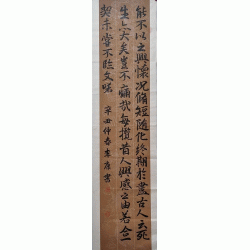 能不以之興懷況脩短隨化終期於盡古人云死
生亦大矣豈不痛哉每攬昔人興感之由若合一
契未嘗不臨文嗟
辛丑仲春李彥書